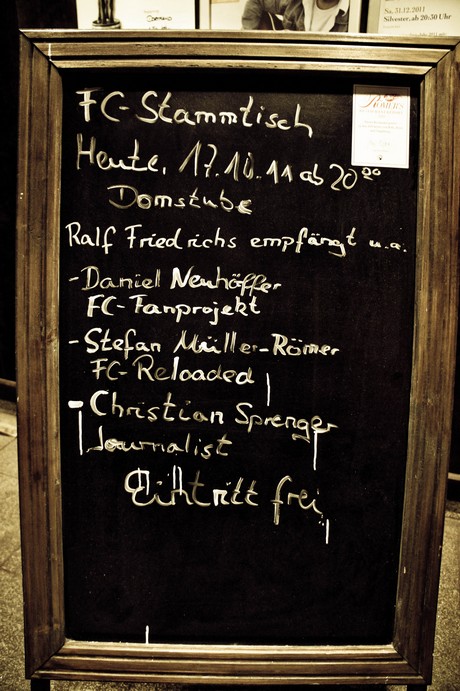 Sa, 31.12.2011
Silvester, ab 20:30 Uhr
RÖMER'S
FC-Stammtisch
Heute, 17.10.11 ab 20⁰⁰
Domstube
Ralf Friedrichs empfängt u.a.
-Daniel Neuhöffer
FC-Fanprojekt
-Stefan Müller-Römer
FC-Reloaded
-Christian Sprenger
Journalist
Eintritt frei